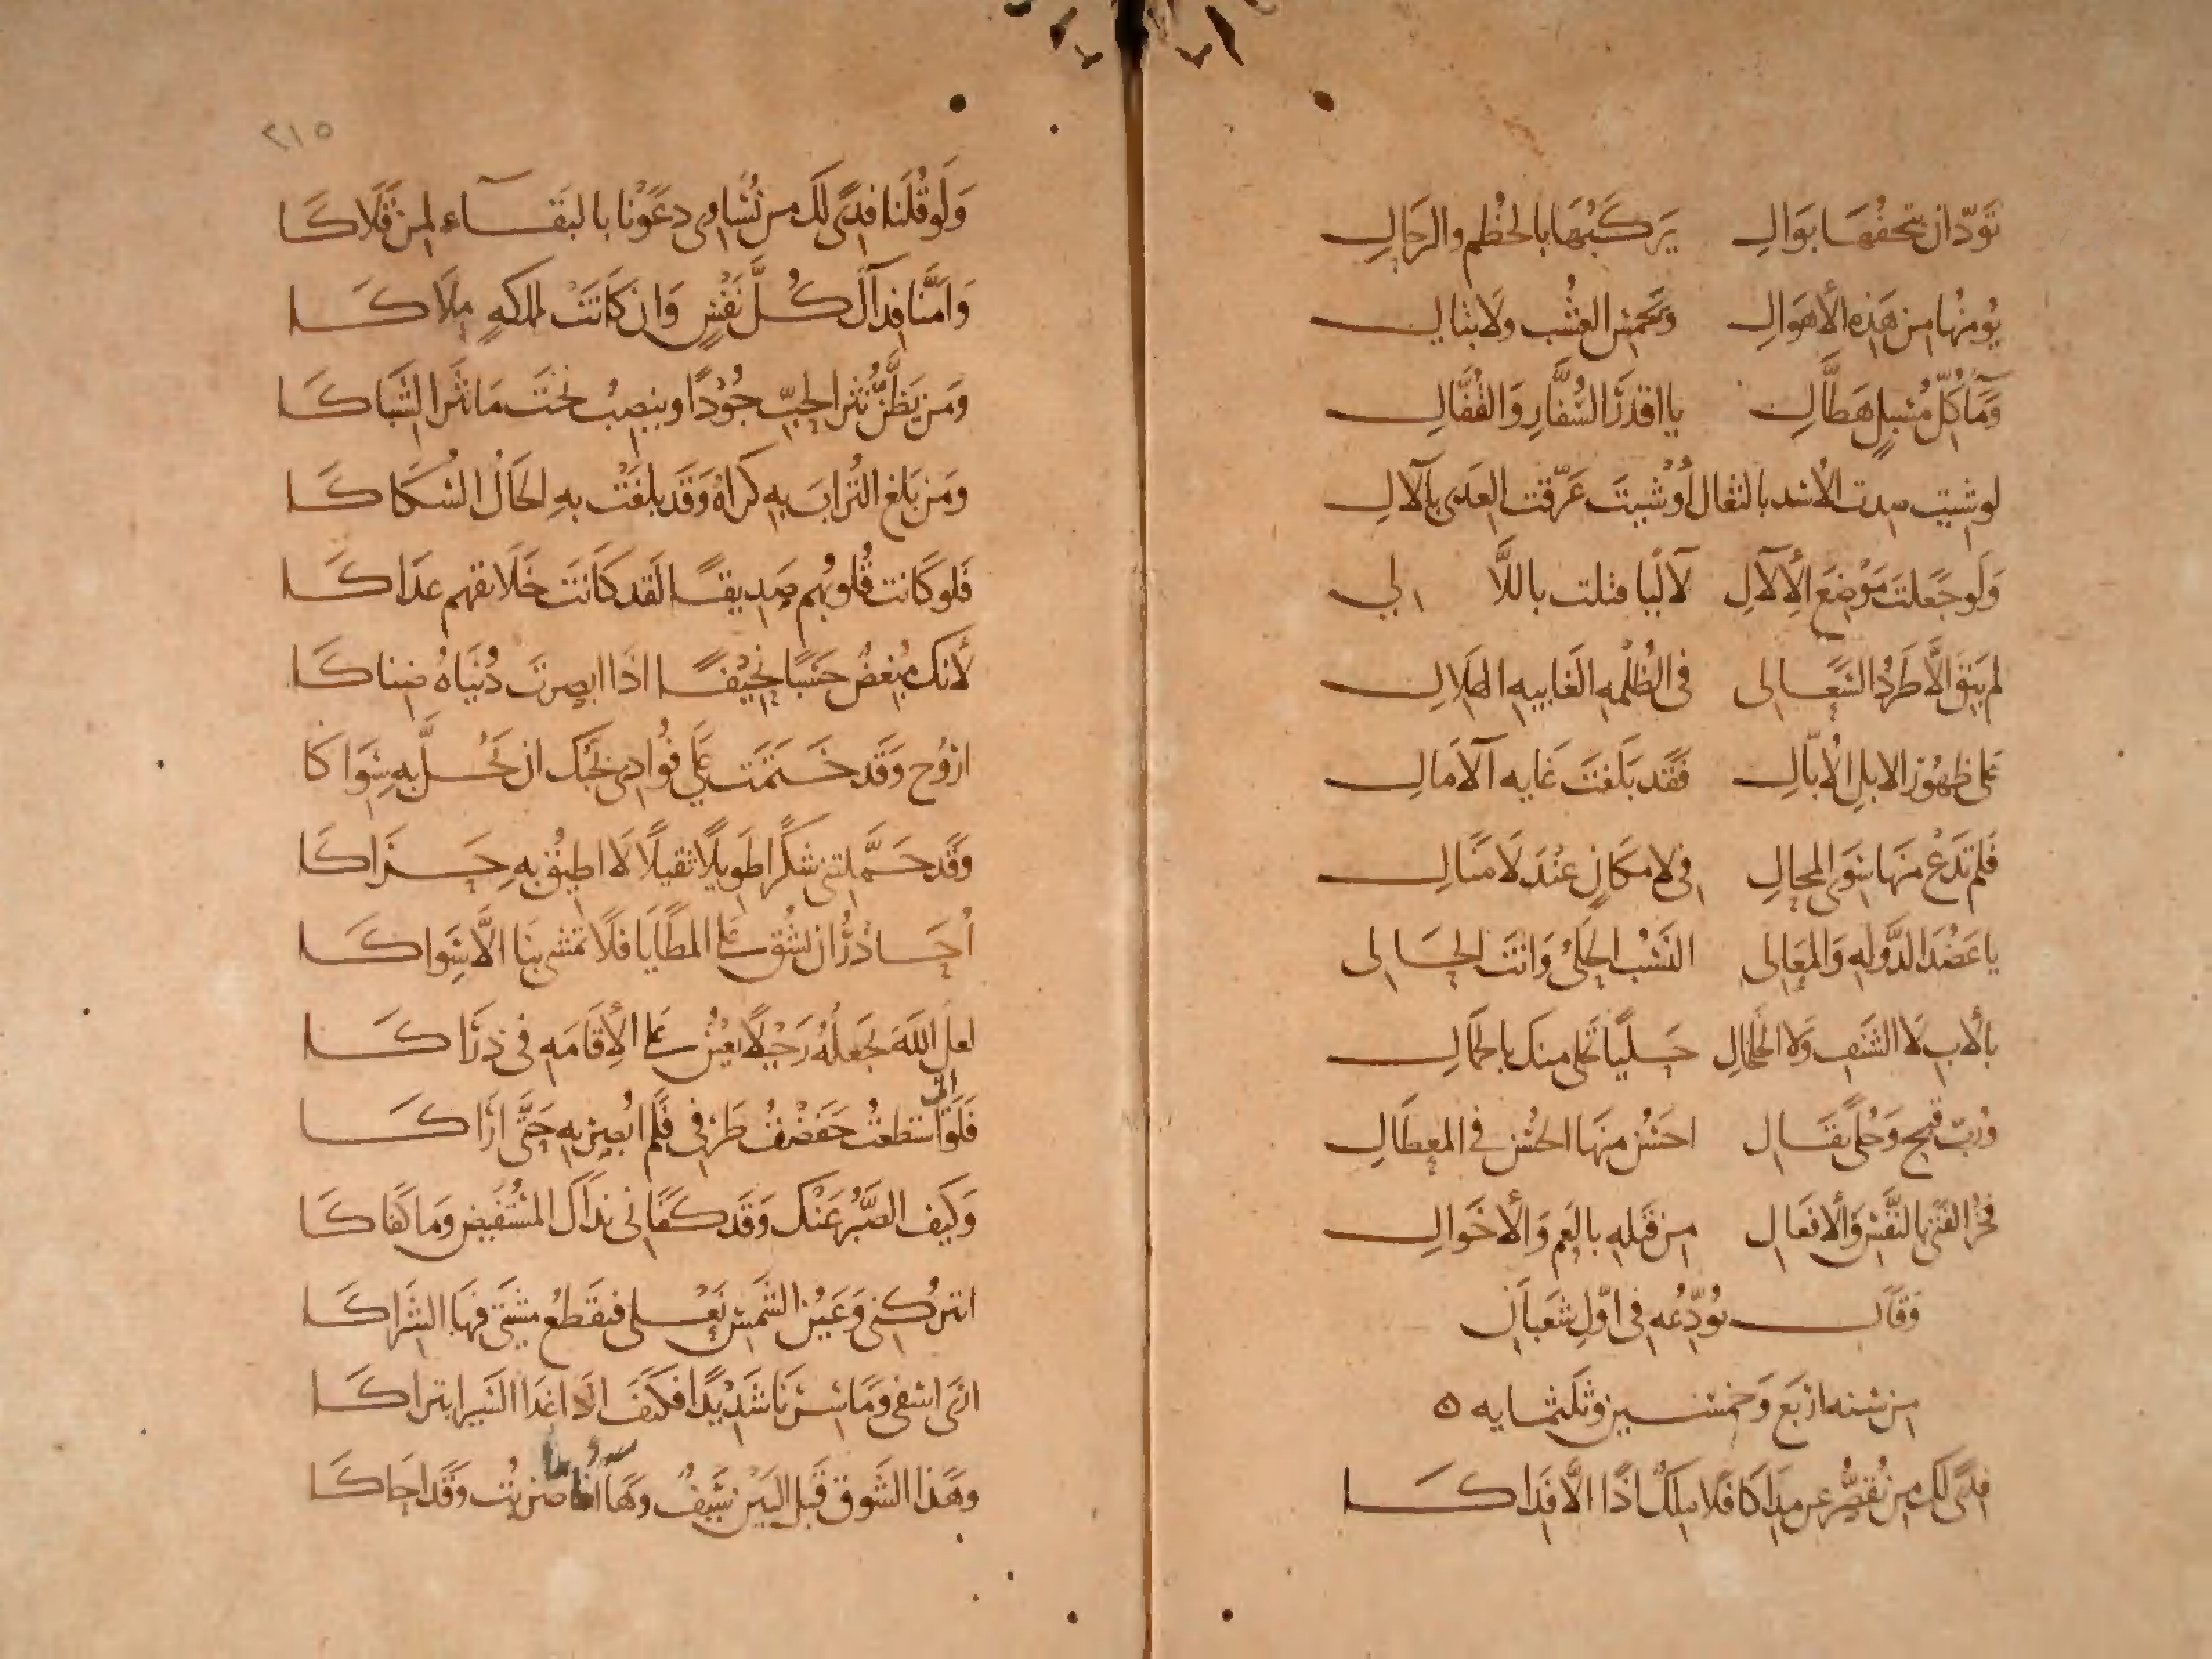 تَوَدّ ان يتحفُهَا بَوالِ يَركَبُهَا بالخُطُم والرَحَالِ
يُومنُها من هَذِه الأهوَالِ وَيَخمسُ العُشب ولا تبالي
وَمَاء كُلّ مُسبِلٍ هَطَّالِ يا اقدَرَ السُّفَّارِ وَالقُفَّالِ
لو شيتَ صدت الأسد بالثعال أوْ شيتَ غَرّقت العِدى بالآلِ
وَلَو جَعَلتَ مَوْضِعَ الإلآلِ لآلئا قتلت باللآلي
لم يَبقَ الَّا طَرَدُ السَّعَالى فى الظُلَمِ الغَايبه الهلالِ
على ظهُور الابلِ الأُبَّالِ فَقَد بَلغتَ غايه الآمَالِ
فلم تدَع منهَا سِوَى المحالِ فى لا مكَانٍ عندَ لا مَنَالِ
يا عَضُدَ الدَّوله وَالمَعَالى النَسَبُ الحَلىُ وَانتَ الحَالى
بالأبِ لا الشَنفِ وَلا الخلخالِ حَليًا تحَلى منكَ بالجمَالِ
وَرُبّ قبحٍ وَحُلًى ثقَالِ احسَنُ منهَا الحُسنُ فى المعطَالِ
فخرُ الفَتَى بالنَفسِ وَالأفعَالِ من قبلهِ بالعَم وَالأخوَالِ
وَقَال يُودّعُه فى اوّلِ شعبَانَ
من سنه اربَع وَخمسين وثلثمايه ه
فِدًى لكَ من يُقصِّرُ عن مَدَاكَا فلا ملكٌ اذًا الّا فَدَاكَا
٢١٥
وَلَو قُلنَا فِدًى لَكَ من تُسَاوِى دعَوْنَا بالبَقَاء لمن قَلَاكَا
وَامَنَّا فِدَآكَ كُلَّ نَفسٍ وَان كَانَتْ لمملكَهٍ مِلَاكَا
ومَن يَظَّنُّ نثرَ الحبّ جُوْدًا وينصِبُ تحتَ مَا نثَرَ الشّبَاكَا
ومَن بَلَغ التُرابَ بهِ كرَاهُ وَقَد بلغَتْ بهِ الحَالُ السُكَاكَا
فلو كَانت قُلوبُهم صَديقًا لَقد كَانَت خَلَائقهم عدَاكَا
لأنكَ مُبغضٌ حَسَبًا نحِيْفًا اذَا ابصرتَ دُنيَاهُ ضناكَا
ارُوح وَقَد خَتَمتَ عَلَى فؤادى بحُبّكَ ان يَحُلّ بهِ سِوَاكَا
وَقَد حَمَّلتنى شكرًا طَويلًا ثقيلًا لَا اطيقُ بهِ حَرَاكَا
أُحَاذرُ ان يشُق على المطَايَا فلا تمشى بنَا الّا سِوَاكَا
لعلَ اللَهَ يَجعلُهُ رَحِيْلًا يعينُ على الإقَامَه فى ذرَاكَا
فَلَو انى استطعتُ خفَضْتُ طَرْفى فلَم ابُصِر بهِ حَتَّى ارَاكَا
وَكيفَ الصَبْرُ عَنكَ وَقَد كَفَانى نَدَاكَ المستَفيض وَمَا كفَاكَا
اتترُكنى وَعَيْنُ الشَمسِ نَعْلى فتقطَعُ مشيَتى فيهَا الشرَاكَا
ارَى اسفى ومَا سِرنَا شَديْدًا فكَيفَ اذَا غدَا السَيرُ ابتراكَا
وهَذا الشَوقُ قَبلَ البَينِ سَيفٌ وهَا انا ما ضربتُ وَقَد احَاكَا